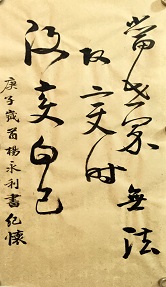 當世界無法
改变时
改变自己
庚子歲首楊永利書紀懷